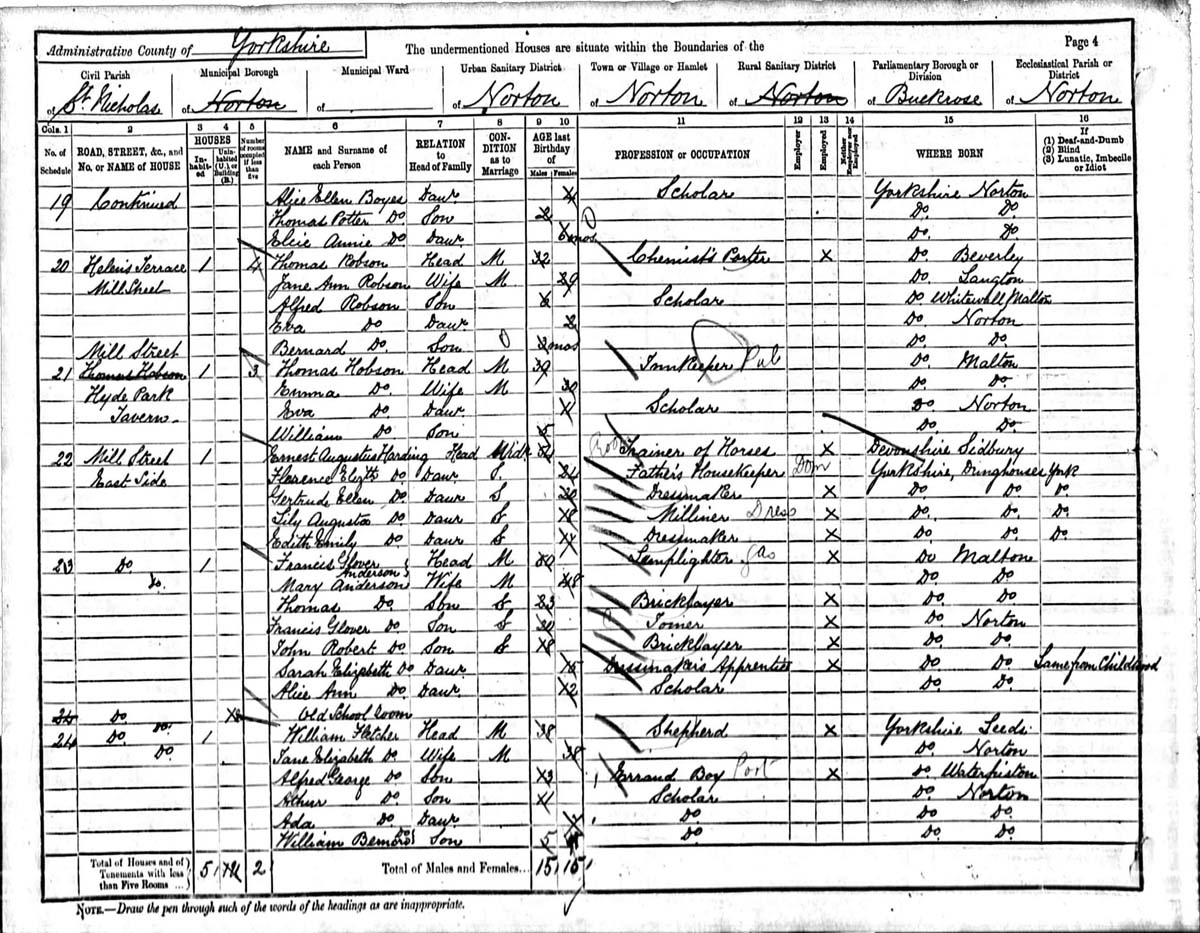 Administrative County of Yorkshire The undermentioned Houses are situate within the Boundaries of the Page 4
Civil Parish Municipal Borough Municipal Ward Urban Sanitary District Town or Village or Hamlet Rural Sanitary District Parliamentary Borough or Division Ecclesiastical Parish or District
of St. Nicholas of Norton of of Norton of Norton of Norton of Buckrose of Norton
Cols. 1 2 3 4 5 6 7 8 9 10 11 12 13 14 15 16
No. of Schedule ROAD, STREET, &c., and No. or NAME of HOUSE HOUSES Inhabited Uninhabited (U.), or Building (B.) Number of rooms occupied if less than five NAME and Surname of each Person RELATION to Head of Family CONDITION as to Marriage AGE last Birthday of Males Females PROFESSION or OCCUPATION Employer Employed Neither Employer nor Employed WHERE BORN If (1) Deaf-and-Dumb (2) Blind (3) Lunatic, Imbecile or Idiot
19 Continued Alice Ellen Boyes Daur 4 Scholar Yorkshire Norton
Thomas Potter Do. Son 2 Do. Do.
Elcie Annie Do Daur 6 mos Do. Do
20 Helens Terrace 1 4 Thomas Robson Head M 32 Chemist's Porter X Do Beverley
Mill Street Jane Ann Robson Wife M 29 Do. Langton
Alfred Robson Son 6 Scholar Do Whitewall Malton
Eva Do Daur 2 Do. Norton
Bernard Do. Son 2 mos Do. Do.
Mill Street
21 Thomas Hobson 1 3 Thomas Hobson Head M 39 Innkeeper Pub Do. Malton
Hyde Park Emma Do. Wife M 30 Do. Do
Tavern Eva Do. Daur Scholar Do Norton
William Do Son 5 Do. Do
22 Mill Street 1 Ernest Augustus Harding Head Widr Trainer of Horses X Devonshire Sidbury
East Side Florence Elizth Do Daur S. 24 Father's Housekeeper Dom Yorkshire, Dringhouses York
Gertrude Ellen Do. Daur S 20 Dressmaker X Do. Do Do.
Lily Augusta Do Daur S 18 Milliner Dress X Do. Do. Do
Edith Emily Do. Daur S Dressmaker X Do. Do. Do
23 Do. 1 Francis Glover Anderson Head M 50 Lamplighter Gas X Do Malton
Do. Mary Anderson Wife M 48 Do. Do
Thomas Do. Son S 23 Bricklayer X Do. Do
Francis Glover Do Son S 20 Joiner X Do Norton
John Robert Do Son S 18 Bricklayer X Do. Do.
Sarah Elizabeth Do Daur. 15 Dressmaker's Apprentice X Do Do Lame from Childhood
Alice Ann Do. Daur. 12 Scholar Do. Do.
24 Do Do. Old School Room
24 Do. 1 William Fletcher Head M 38 Shepherd X Yorkshire Leeds
Do Jane Elizabeth Do Wife M 38 Do. Norton
Alfred George Do Son 13 Errand Boy Port X Do. Waterfiston
Athur Do. Son 11 Scholar Do. Norton
Ada Do. Daur Do Do Do.
William Do Son 5 Do. Do. Do.
Total of Houses and of Tenements with less than Five Rooms ... 5 2 Total of Males and Females... 15 15
NOTE.—Draw the pen through such of the words of the headings as are inappropriate.